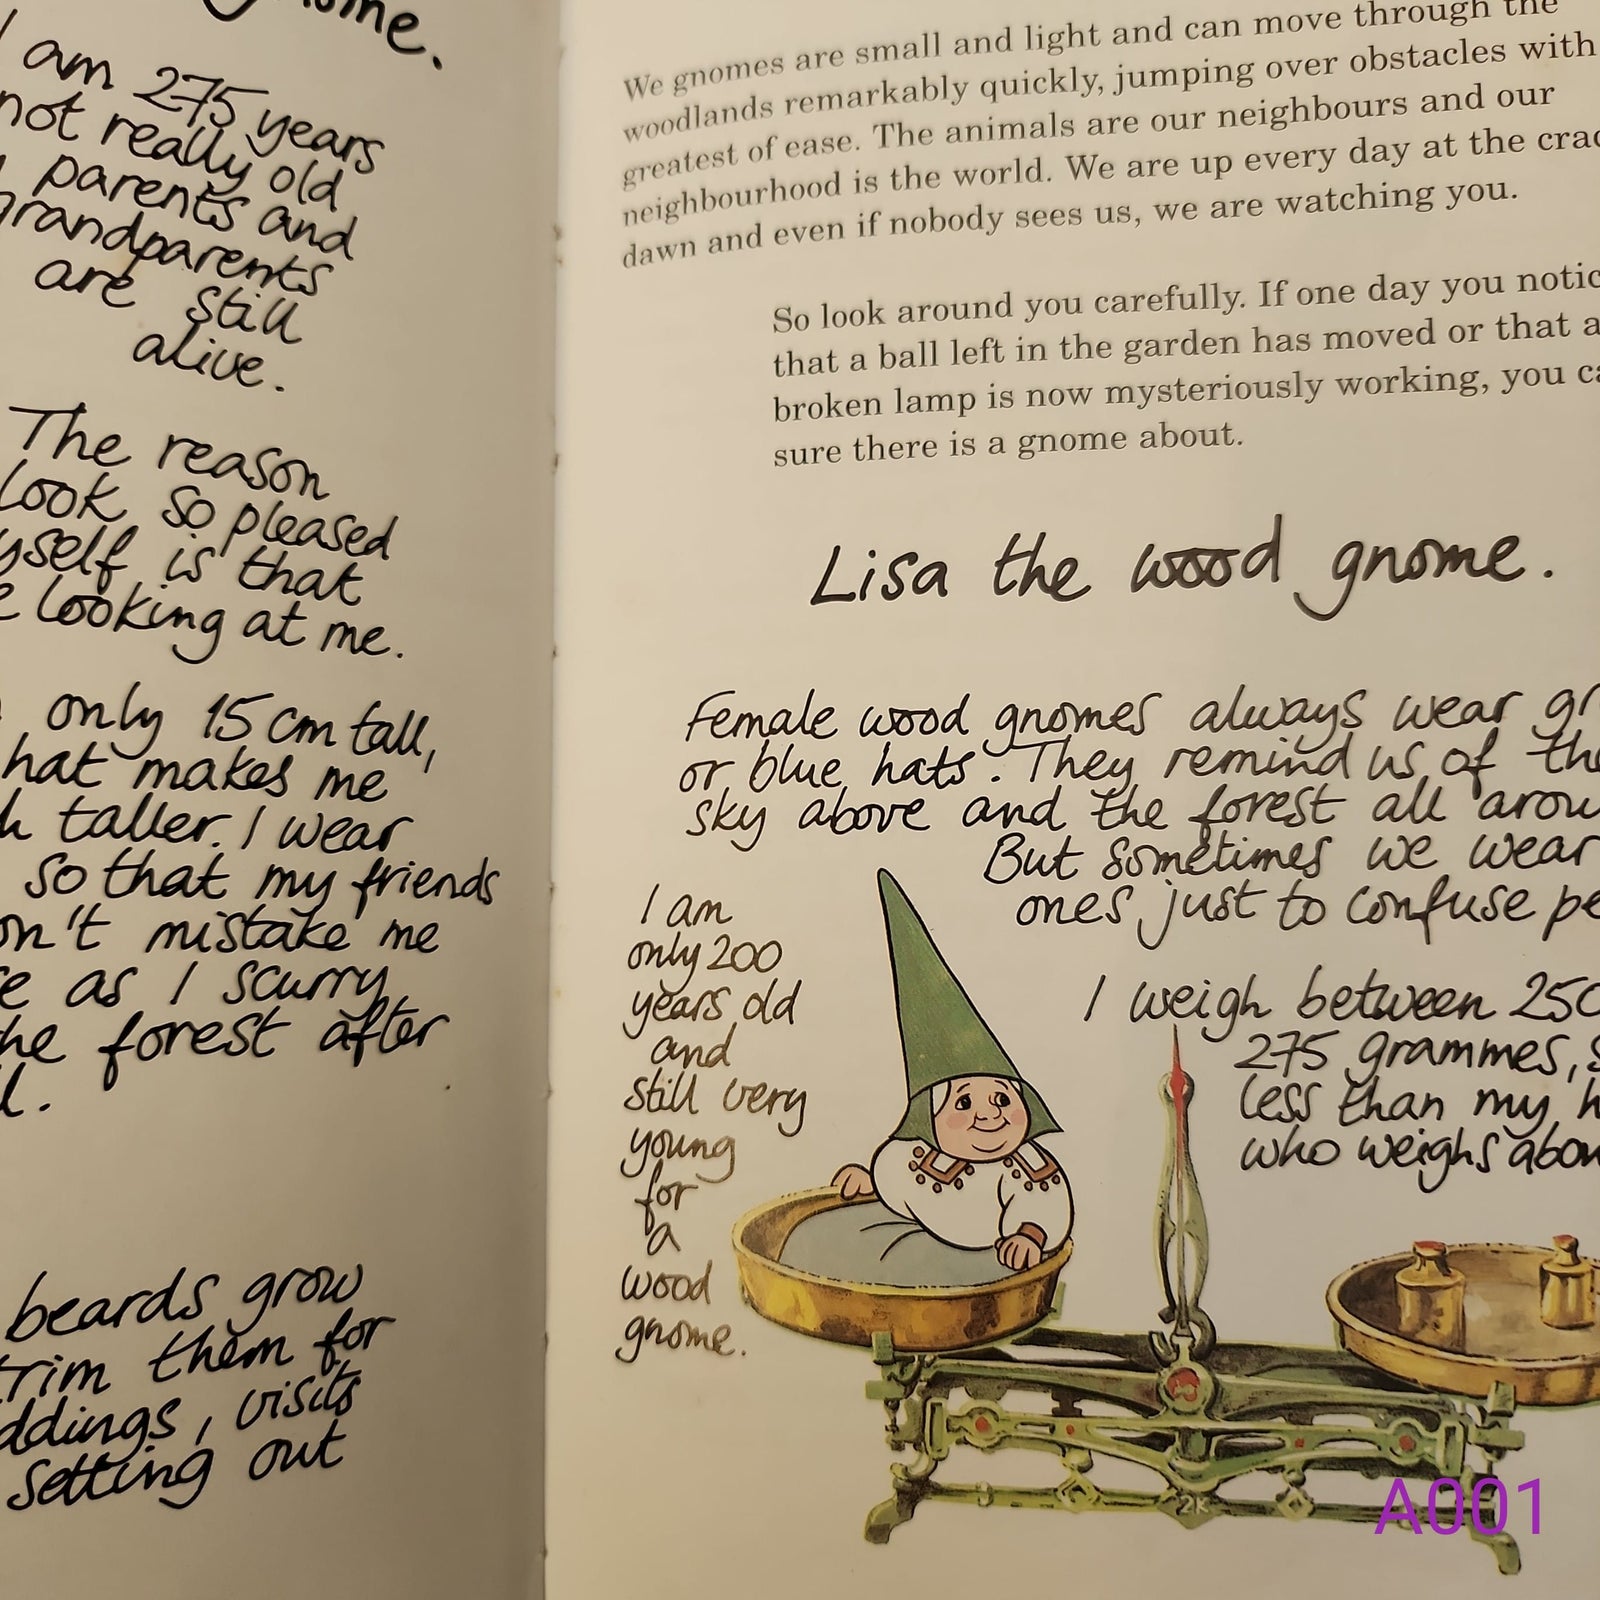 gnome.
I am 275 years
not really old
parents and
grandparents
are still
alive.
The reason
look so pleased
myself is that
looking at me.
only 15 cm tall,
hat makes me
taller. I wear
so that my friends
don't mistake me
as I scurry
the forest after
beards grow
trim them for
weddings, visits
setting out
We gnomes are small and light and can move through the
woodlands remarkably quickly, jumping over obstacles with
greatest of ease. The animals are our neighbours and our
neighbourhood is the world. We are up every day at the crac
dawn and even if nobody sees us, we are watching you.
So look around you carefully. If one day you notic
that a ball left in the garden has moved or that a
broken lamp is now mysteriously working, you ca
sure there is a gnome about.
Lisa the wood gnome.
Female wood gnomes always wear gr
or blue hats. They remind us of the
sky above and the forest all arou
But sometimes we wear
ones just to confuse pe
I am
only 200
years old
and
still very
young
for
a
wood
gnome.
I weigh between 250
275 grammes, s
less than my h
who weighs abou
2K
A001